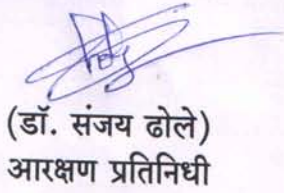 (डॉ. संजय ढोले)
आरक्षण प्रतिनिधी